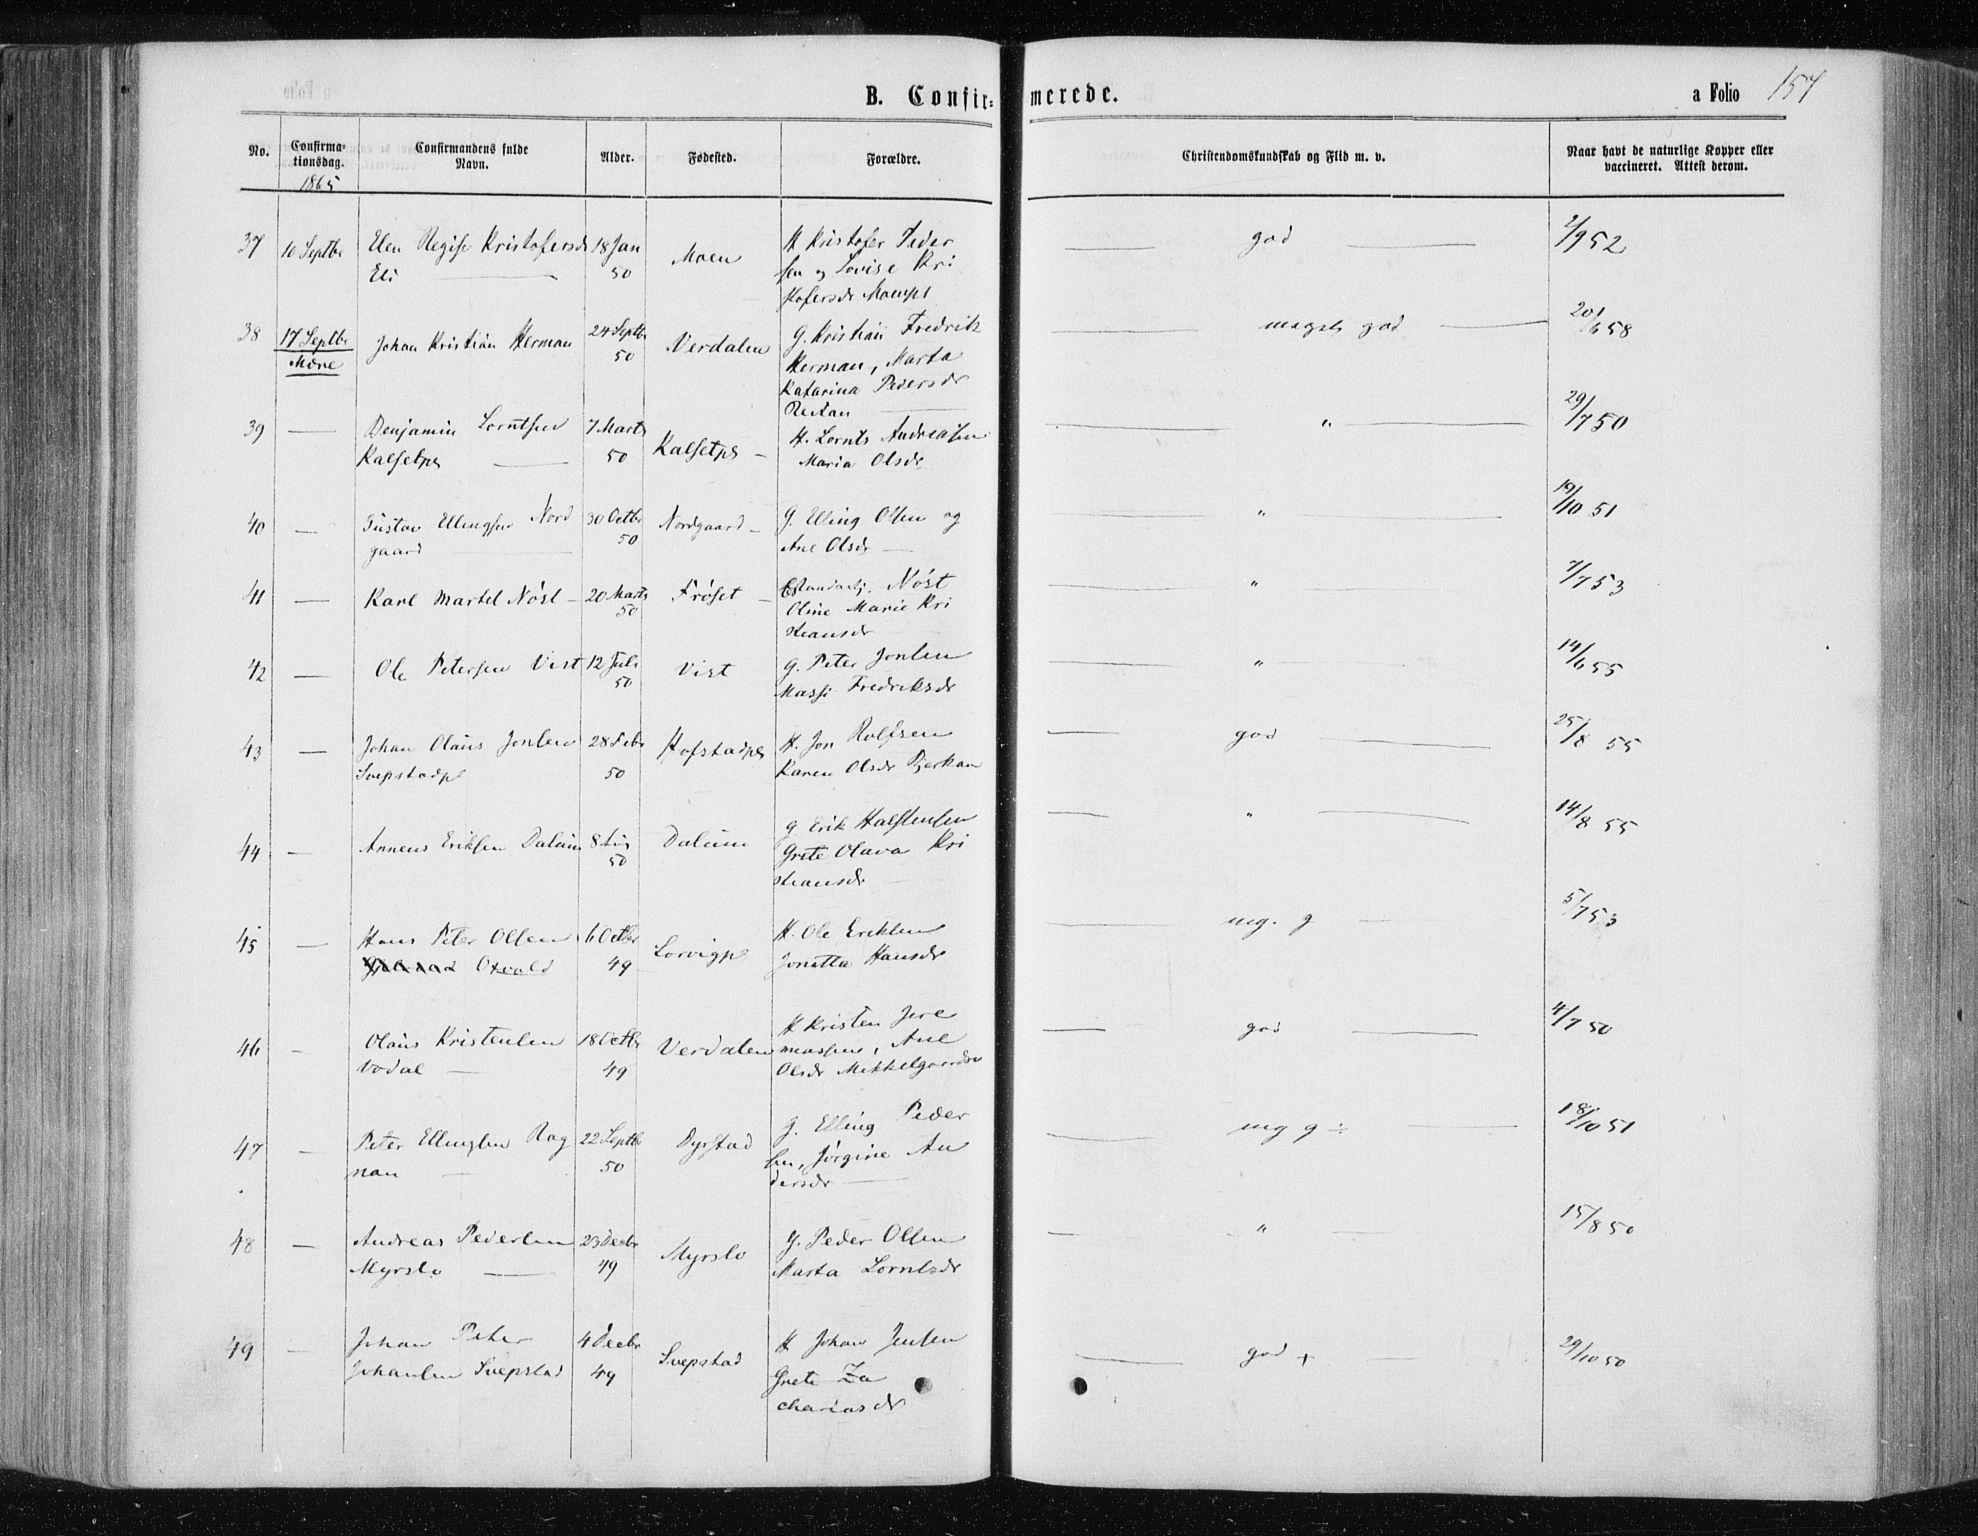 B. Confirmerede.
a Folio 157
No. Confirmationsdag. Confirmandens fulde Navn. Alder. Fødested. Forældre. Christendomskundskab og Flid m. v. Naar havt de naturlige Kopper eller vaccineret. Attest derom.
1865
37 10 Septbr Elen Kristofersdr 18 Jan Moen H Kristofer Peder god 2/9 52
Eli 50 sen og Lovise Kri
stofersdr
38 17 Septbr Johan Kristian Herman 24 Septbr Verdalen G. Kristian Fredrik megeb god 20/6 58
Mære 50 Herman, Marta
Katarina Pedersdr
39 — Benjamin Lorntsen 7 Marts Kalsetpl — H. Lornts Andreasen " 29/7 50
Kalsetpl 50 Maria Olsdr
40 — Gustav Ellingsen Nord 30 Octbr Nordgaard — G. Elling Olsen og " 19/10 51
gaard 50 Ane Olsdr
41 — Karl Martel Nøst — 20 Marts Frøset — Nøst " 7/7 53
50 Oline Marie Kri
stiansdr
42 — Ole Petersen Vist 12 Juli Vist G. Peter Jonsen " 14/6 55
50 Massi Fredriksdr
43 — Johan Olaus Jonsen 28 Febr Hofstadpl H. Jon Rolfsen god 25/8 55
Svepstadpl 50 Karen Olsdr Bjerkan
44 — Anneus Eriksen Dalum 8 Aug Dalum G Erik Halstensen " 14/8 55
50 Grete Olava Kri
stiansdr
45 — Hans Peter Olsen 6 Octbr Lorvigpl H. Ole Eriksen mg. g 5/7 53
49 Jonetta Hansdr
46 - Olaus Kristensen 18 Octbr Verdalen H Kristen Jere god 4/7 50
Vodal 49 miassen, Ane
Olsdr
47 - Peter Ellingsen Rag 22 Septbr Dyrstad G. Elling Peder mg g ÷ 18/10 51
nan 50 sen, Jørgine An
dersdr
48 — Andreas Pedersen 23 Decbr Myrslo G. Peder Olsen " 15/8 50
Myrslo 49 Marta Lorntsdr
49 — Johan Peter 4 Decbr Svepstad H Johan Jensen god + 29/10 50
Johansen Svepstad 49 Grete Za
chariasdr